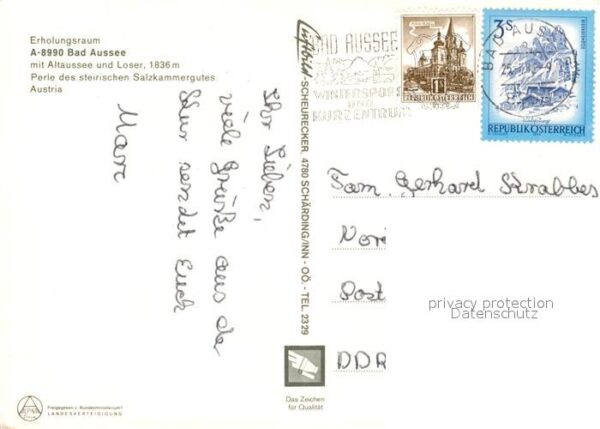 Erholungsraum
A-8990 Bad Aussee
mit Altaussee und Loser, 1836 m
Perle des steirischen Salzkammergutes
Austria
Ihr Lieben,
viele Grüße aus der
Kur sendet Euch
Marc
Luftbild-SCHEURECKER, 4780 SCHÄRDING/INN - OÖ. - TEL. 2329
BAD AUSSEE
WINTERSPORT
UND
KURZENTRUM
REPUBLIK ÖSTERREICH
1S
3S
REPUBLIK ÖSTERREICH
BAD AUSSEE
Fam. Gerhard
Nor
Post
DDR
privacy protection
Datenschutz
Das Zeichen
für Qualität
Freigegeben v. Bundesministerium f.
LANDESVERTEIDIGUNG